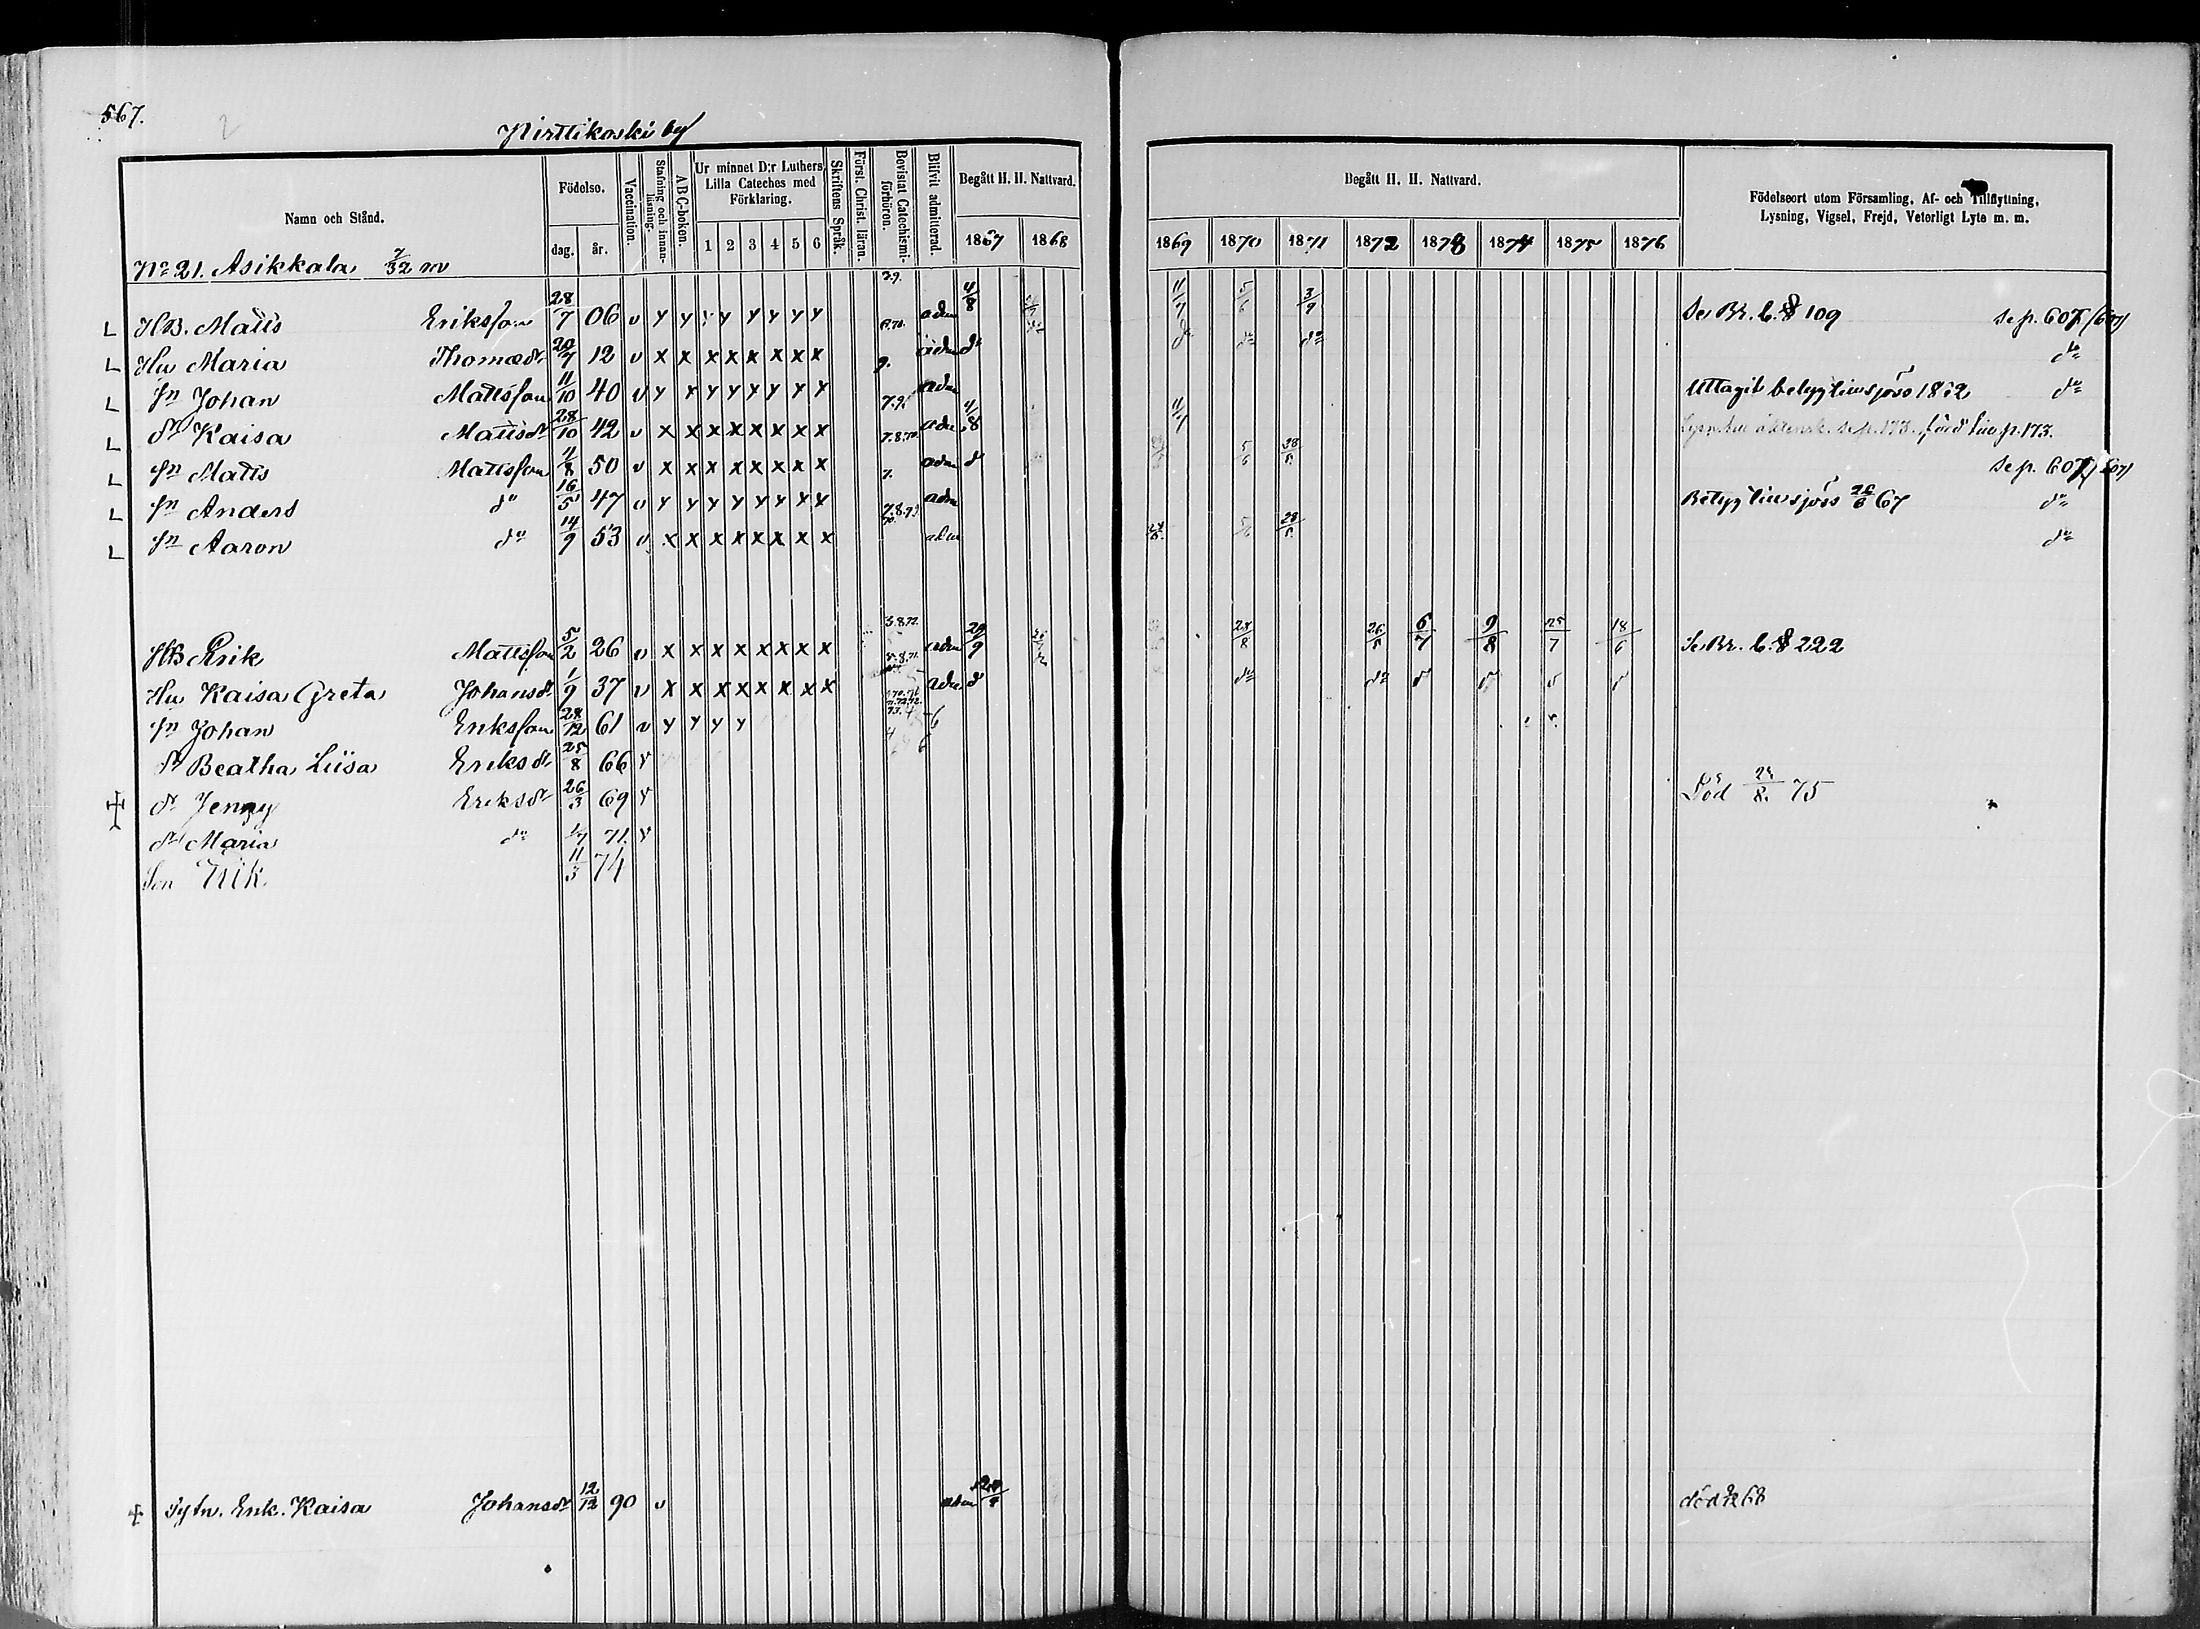 567.
2
Pirttikoski by
Namn och Stånd.
Födelse.
dag. år.
Vaccination.
Stafning och innanläsning.
ABC-boken.
Ur minnet D:r Luthers Lilla Cateches med Förklaring.
1 2 3 4 5 6
Skriftens Språk.
Först. Christ. läran.
Bevistat Catechismi-förhören.
Blifvit admitterad.
Begått H. H. Nattvard.
1867 1868
Begått H. H. Nattvard.
1869 1870 1871 1872 1873 1874 1875 1876
Födelseort utom Församling, Af- och Tillflyttning, Lysning, Vigsel, Frejd, Veterligt Lyte m. m.
No 21. Asikkala 7/32 m
L HB. Matts Eriksson 28/7 06 v y y y y y y y y adm 4/8 11/7 5/6 3/9 Se Br. b. § 109 se p. 607 (607)
L Hu Maria Thomædr 20/7 12 v x x x x x x x x 9. adm do do do do do
L sn Johan Mattsson 11/10 40 v y y y y y y y y 7.9. adm Uttagit betyg till 1862 do
L dr Kaisa Mattsdr 28/10 42 v x x x x x x x x 7.8.70 adm 4/8 11/7 se p. 173. förd p. 173.
L sn Matts Mattsson 4/8 50 v x x x x x x x x 7. adm d 5/6 28/5 se p. 607 (607)
L sn Anders do 16/5 47 v y y y y y y y y 7.8.73 adm Betyg 26/6 67 do
L sn Aaron do 14/9 53 v x x x x x x x x adm 5/6 28/5 do
HB Erik Mattsson 5/2 26 v x x x x x x x x 3.8.72. adm 29/9 28/8 26/5 6/7 9/8 25/7 18/6 Se Br. b. § 222
Hu Kaisa Greta Johansdr 1/9 37 v x x x x x x x x adm d do do d d d d
sn Johan Eriksson 28/12 61 v y y y y
dr Beatha Liisa Eriksdr 25/8 66 v
dr Jenny Eriksdr 26/3 69 v Död 28/8. 75
dr Maria do 1/7 71. v
Son Erik. 11/3 74
Sytn. Enk. Kaisa Johansdr 12/12 90 v adm 29/9 död 68